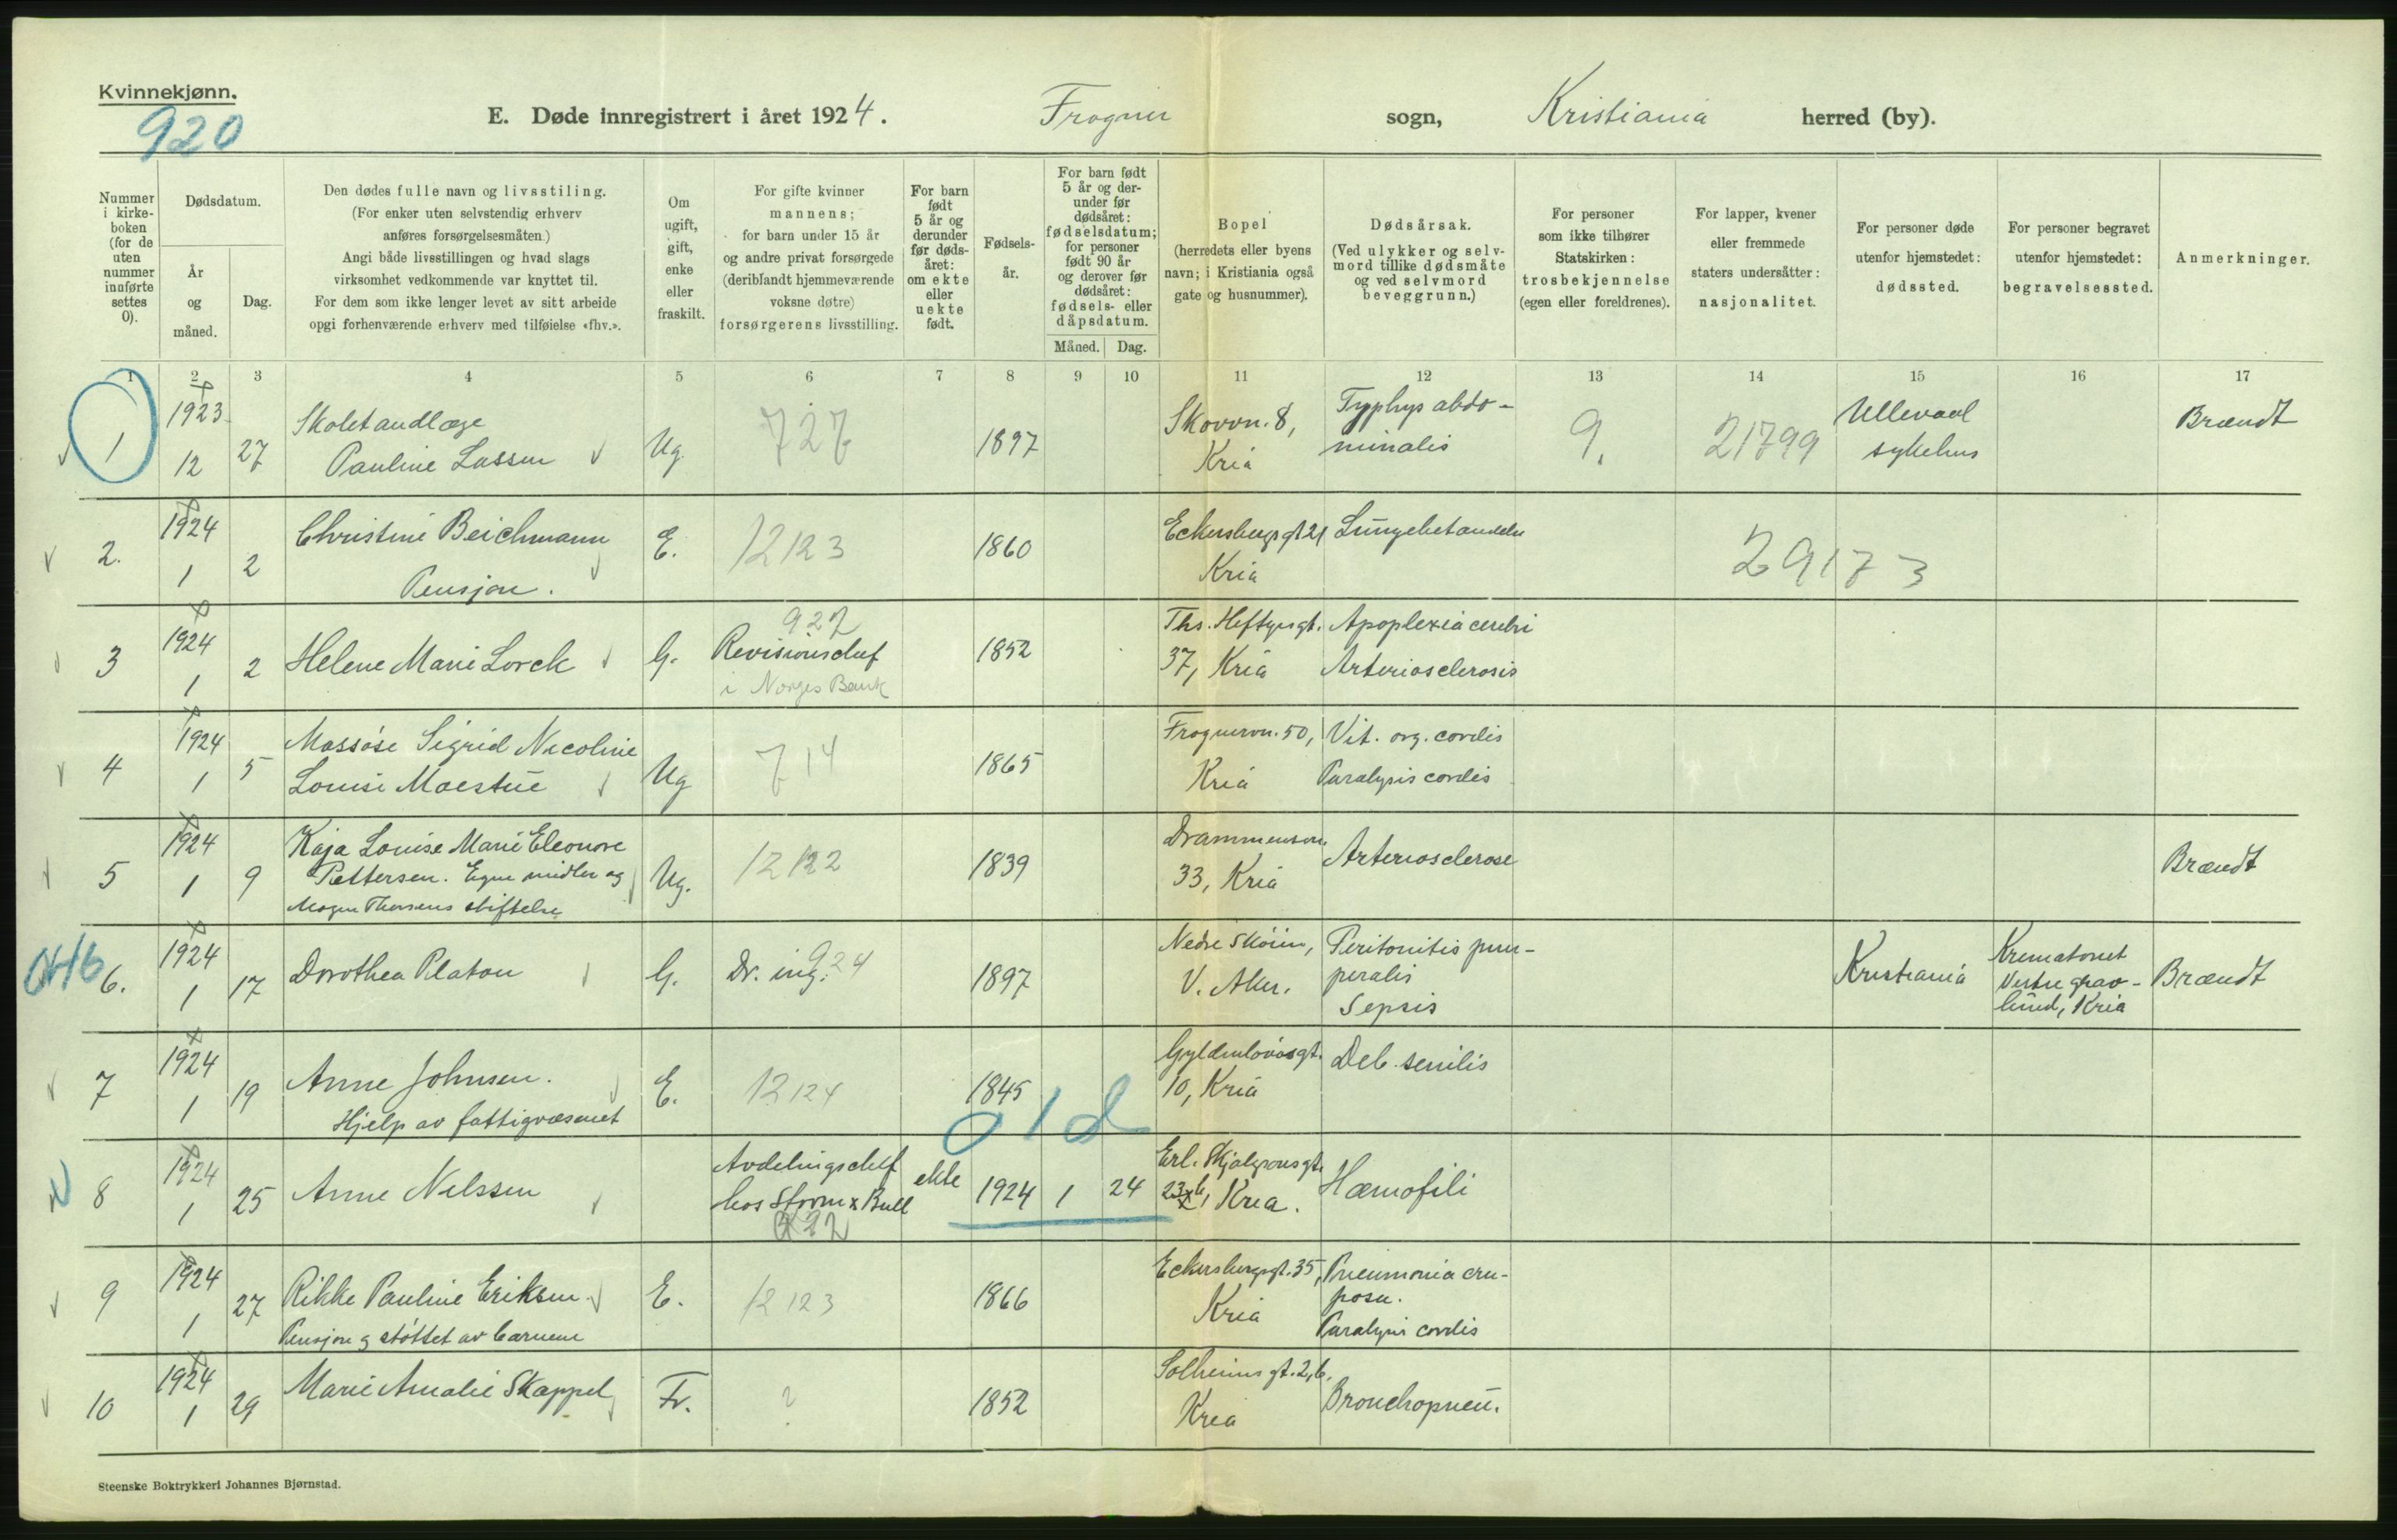 Kvinnekjønn.
920
E. Døde innregistrert i året 1924. Frogner sogn, Kristiania herred (by).
Nummer i kirke-
boken
(for de
uten
nummer
innførte
settes
0).
Dødsdatum.
År
og
måned.
Dag.
Den dødes fulle navn og livsstiling.
(For enker uten selvstendig erhverv
anføres forsørgelsesmåten.)
Angi både livsstillingen og hvad slags
virksomhet vedkommende var knyttet til.
For dem som ikke lenger levet av sitt arbeide
opgi forhenværende erhverv med tilføielse «fhv.».
Om
ugift,
gift,
enke
eller
fraskilt.
For gifte kvinner
mannens;
for barn under 15 år
og andre privat forsørgede
(deriblandt hjemmeværende
voksne døtre)
forsørgerens livsstilling.
For barn
født
5 år og
derunder
før døds-
året:
om ekte
eller
uekte
født.
Fødsels-
år.
For barn født
5 år og der-
under før
dødsåret:
fødselsdatum;
for personer
født 90 år
og derover før
dødsåret:
fødsels- eller
dåpsdatum.
Måned. Dag.
Bopel
(herredets eller byens
navn; i Kristiania også
gate og husnummer).
Dødsårsak.
(Ved ulykker og selv-
mord tillike dødsmåte
og ved selvmord
beveggrunn.)
For personer
som ikke tilhører
Statskirken:
trosbekjennelse
(egen eller foreldrenes).
For lapper, kvener
eller fremmede
staters undersåtter:
nasjonalitet.
For personer døde
utenfor hjemstedet:
dødssted.
For personer begravet
utenfor hjemstedet:
begravelsessted.
Anmerkninger.
1 2 3 4 5 6 7 8 9 10 11 12 13 14 15 16 17
1 1923 12 27 Skoletandlæge
Pauline Lassen Ug. 727 1897 Skovvn. 8,
Kria Typhys abdo-
minalis 9. 21799 Ullevaal
sykehus Brændt
2. 1924 1 2 Christine Beichmann
Pensjon. E. 12123 1860 Eckersbergsgt 21
Kria Lungebetændelse 29173
3 1924 1 2 Helene Marie Lorck G. 927
Revisionschef
i Norges Bank 1852 Ths. Heftyesgt.
37, Kria Apoplexia cerebri
Arteriosclerosis
4 1924 1 5 Massøse Sigrid Nicoline
Louise Moestue Ug 714 1865 Frognervn. 50,
Kria Vit. org. cordis
Paralysis cordis
5 1924 1 9 Kaja Louise Marie Eleonore
Pettersen. Egne midler og
Mogen Thorsens stiftelse Ug. 12122 1839 Drammensvn.
33, Kria Arteriosclerose Brændt
6. 1924 1 17 Dorothea Platou G. Dr. ing. 924 1897 Nedre Skøien,
V. Aker. Peritonitis puer-
peralis
Sepsis Kristiania Krematoriet
Vestre grav-
lund, Kria Brændt
7 1924 1 19 Anne Johnsen.
Hjelp av fattigvæsenet E. 12124 1845 Gyldenløvesgt.
10, Kria Deb. senilis
01d
8 1924 1 25 Anne Nilssen Avdelingschef
hos Storm & Bull
922 ekte 1924 1 24 Erl. Skjalgsonsgt.
23 b, Kria. Hæmofili
9 1924 1 27 Rikke Pauline Eriksen
Pensjon og støttet av barnene E. 12123 1866 Eckersbergsgt. 35,
Kria Pneumonia cru-
posa.
Paralysis cordis
10 1924 1 29 Marie Amalie Skappel Fr. ? 1852 Solheimsgt. 2, b,
Kria Bronchopneu.
Steenske Boktrykkeri Johannes Bjørnstad.